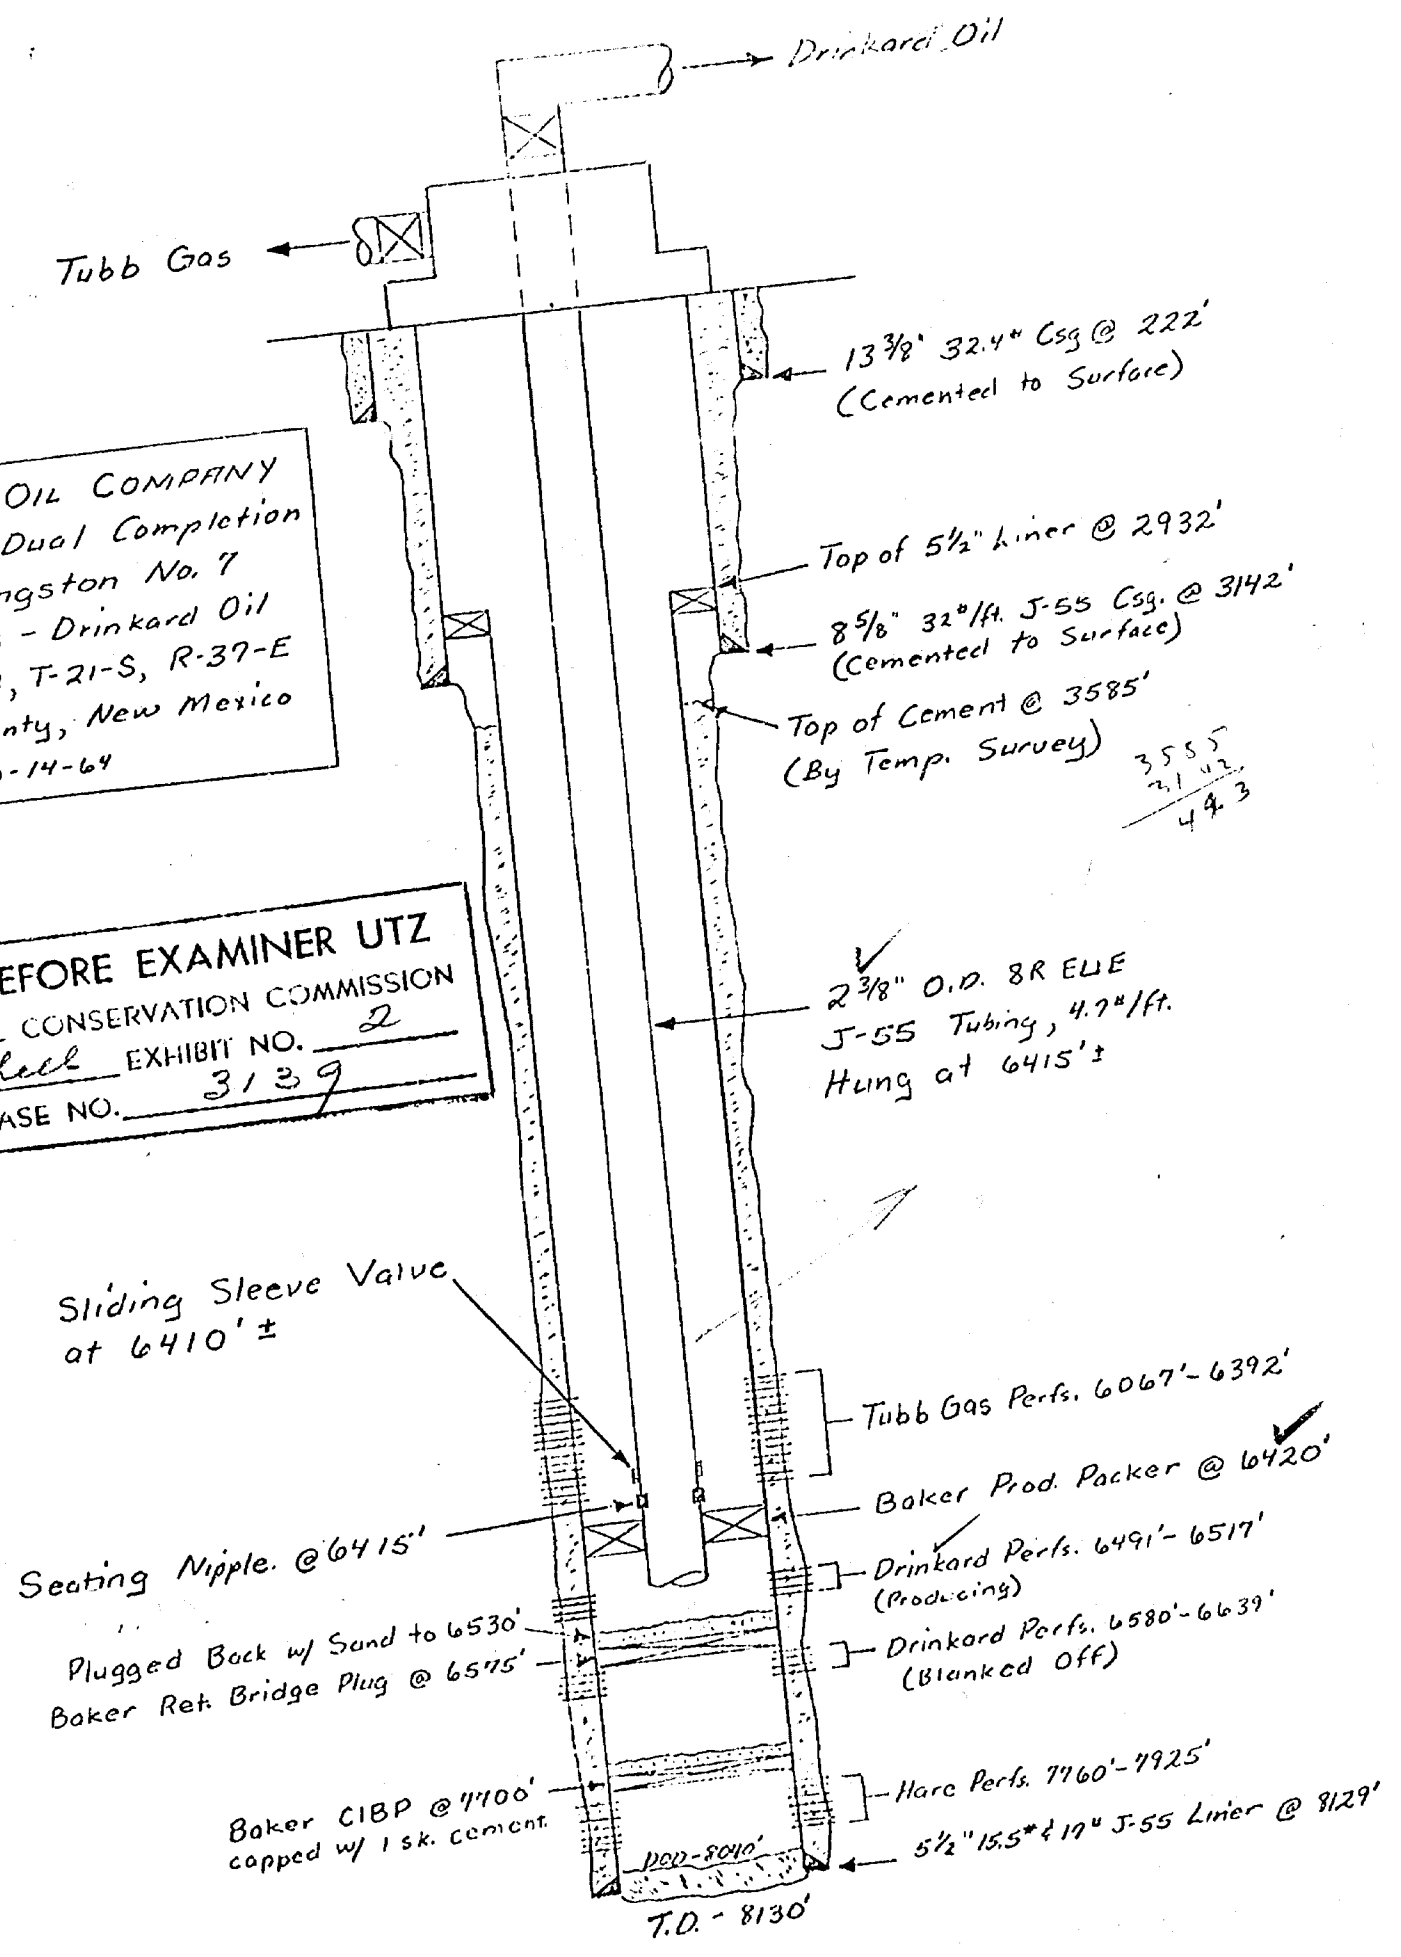 Drinkard Oil
Tubb Gas
13 3/8" 32.4# Csg @ 222'
(Cemented to Surface)
OIL COMPANY
Dual Completion
ngston No. 7
- Drinkard Oil
, T-21-S, R-37-E
nty, New Mexico
-14-64
Top of 5 1/2" Liner @ 2932'
8 5/8" 32#/ft. J-55 Csg. @ 3142'
(Cemented to Surface)
Top of Cement @ 3585'
(By Temp. Survey)
EFORE EXAMINER UTZ
CONSERVATION COMMISSION
EXHIBIT NO. 2
ASE NO. 3139
2 3/8" O.D. 8R EUE
J-55 Tubing, 4.7#/ft.
Hung at 6415' ±
Sliding Sleeve Valve
at 6410' ±
Tubb Gas Perfs. 6067'-6392'
Baker Prod. Packer @ 6420'
Seating Nipple. @ 6415'
Drinkard Perfs. 6491'-6517'
(Producing)
Plugged Back w/ Sand to 6530'
Baker Ret. Bridge Plug @ 6575'
Drinkard Perfs. 6580'-6639'
(Blanked Off)
Baker CIBP @ 7700'
capped w/ 1 sk. cement.
Hare Perfs. 7760'-7925'
5 1/2" 15.5# & 17# J-55 Liner @ 8129'
8040'
T.D. - 8130'